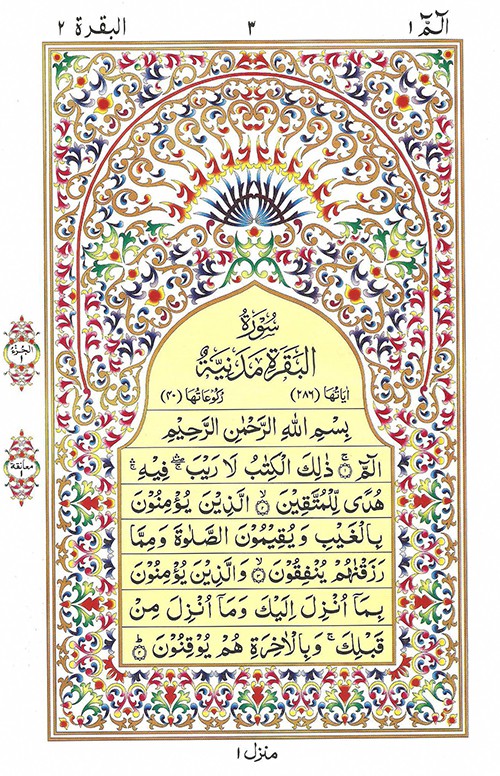 الٓمّٓ ١ ٣ البقرة ٢
سُوْرَةُ
الْبَقَرَةِ مَدَنِيَّةٌ
اٰيَاتُهَا (٢٨٦) رُكُوْعَاتُهَا (٤٠)
بِسْمِ اللّٰهِ الرَّحْمٰنِ الرَّحِيْمِ
الٓمّٓ ۚ﴿١﴾ ذٰلِكَ الْكِتٰبُ لَا رَيْبَ ۛۖ فِيْهِ ۛۚ
هُدًى لِّلْمُتَّقِيْنَ ۙ﴿٢﴾ الَّذِيْنَ يُؤْمِنُوْنَ
بِالْغَيْبِ وَيُقِيْمُوْنَ الصَّلٰوةَ وَمِمَّا
رَزَقْنٰهُمْ يُنْفِقُوْنَ ۙ﴿٣﴾ وَالَّذِيْنَ يُؤْمِنُوْنَ
بِمَاۤ اُنْزِلَ اِلَيْكَ وَمَاۤ اُنْزِلَ مِنْ
قَبْلِكَ ۚ وَبِالْاٰخِرَةِ هُمْ يُوْقِنُوْنَ ؕ﴿٤﴾
الْجُزْءُ
١
معانقة
١
منزل ١